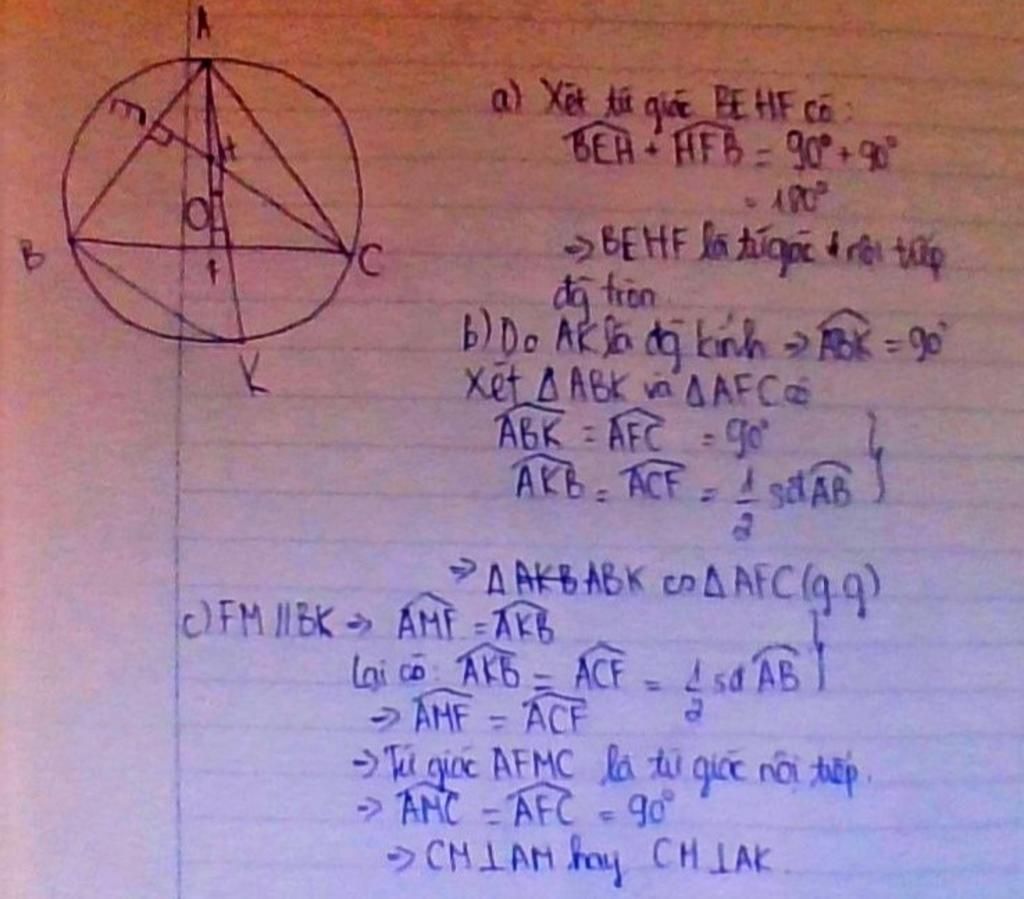 A
E
H
O
B
C
F
K
a) Xét tứ giác BEHF có:
BEH + HFB = 90° + 90°
= 180°
=> BEHF là tứ giác nội tiếp
đg tròn
b) Do AK là đg kính => ABK = 90°
Xét Δ ABK và Δ AFC có
ABK = AFC = 90°
AKB = ACF = 1/2 sđ AB
=> Δ AKB ABK ∽ Δ AFC (g.g)
c) FM // BK => AMF = AKB
Lại có: AKB = ACF = 1/2 sđ AB
=> AMF = ACF
=> Tứ giác AFMC là tứ giác nội tiếp.
=> AMC = AFC = 90°
=> CM ⊥ AM hay CM ⊥ AK.